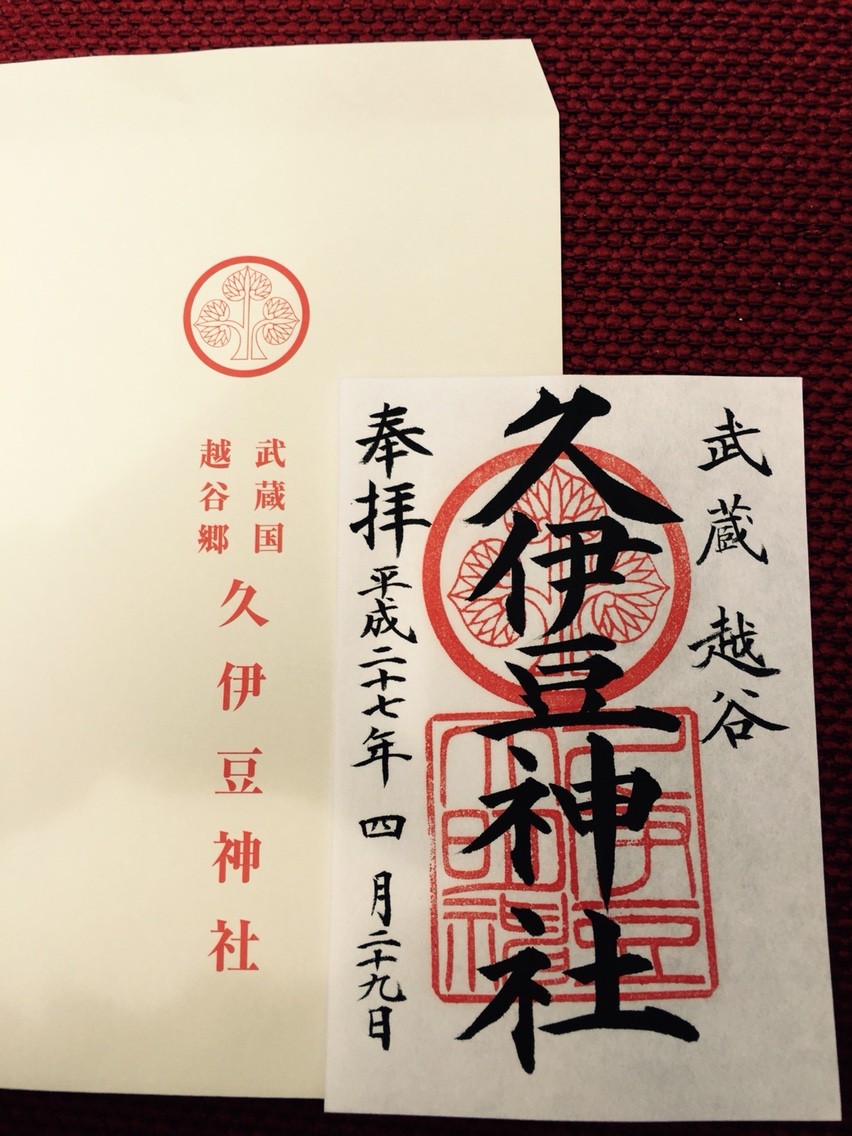 武蔵国
越谷郷
久伊豆神社
武蔵 越谷
久伊豆神社
奉拝 平成二十七年 四 月二十九日